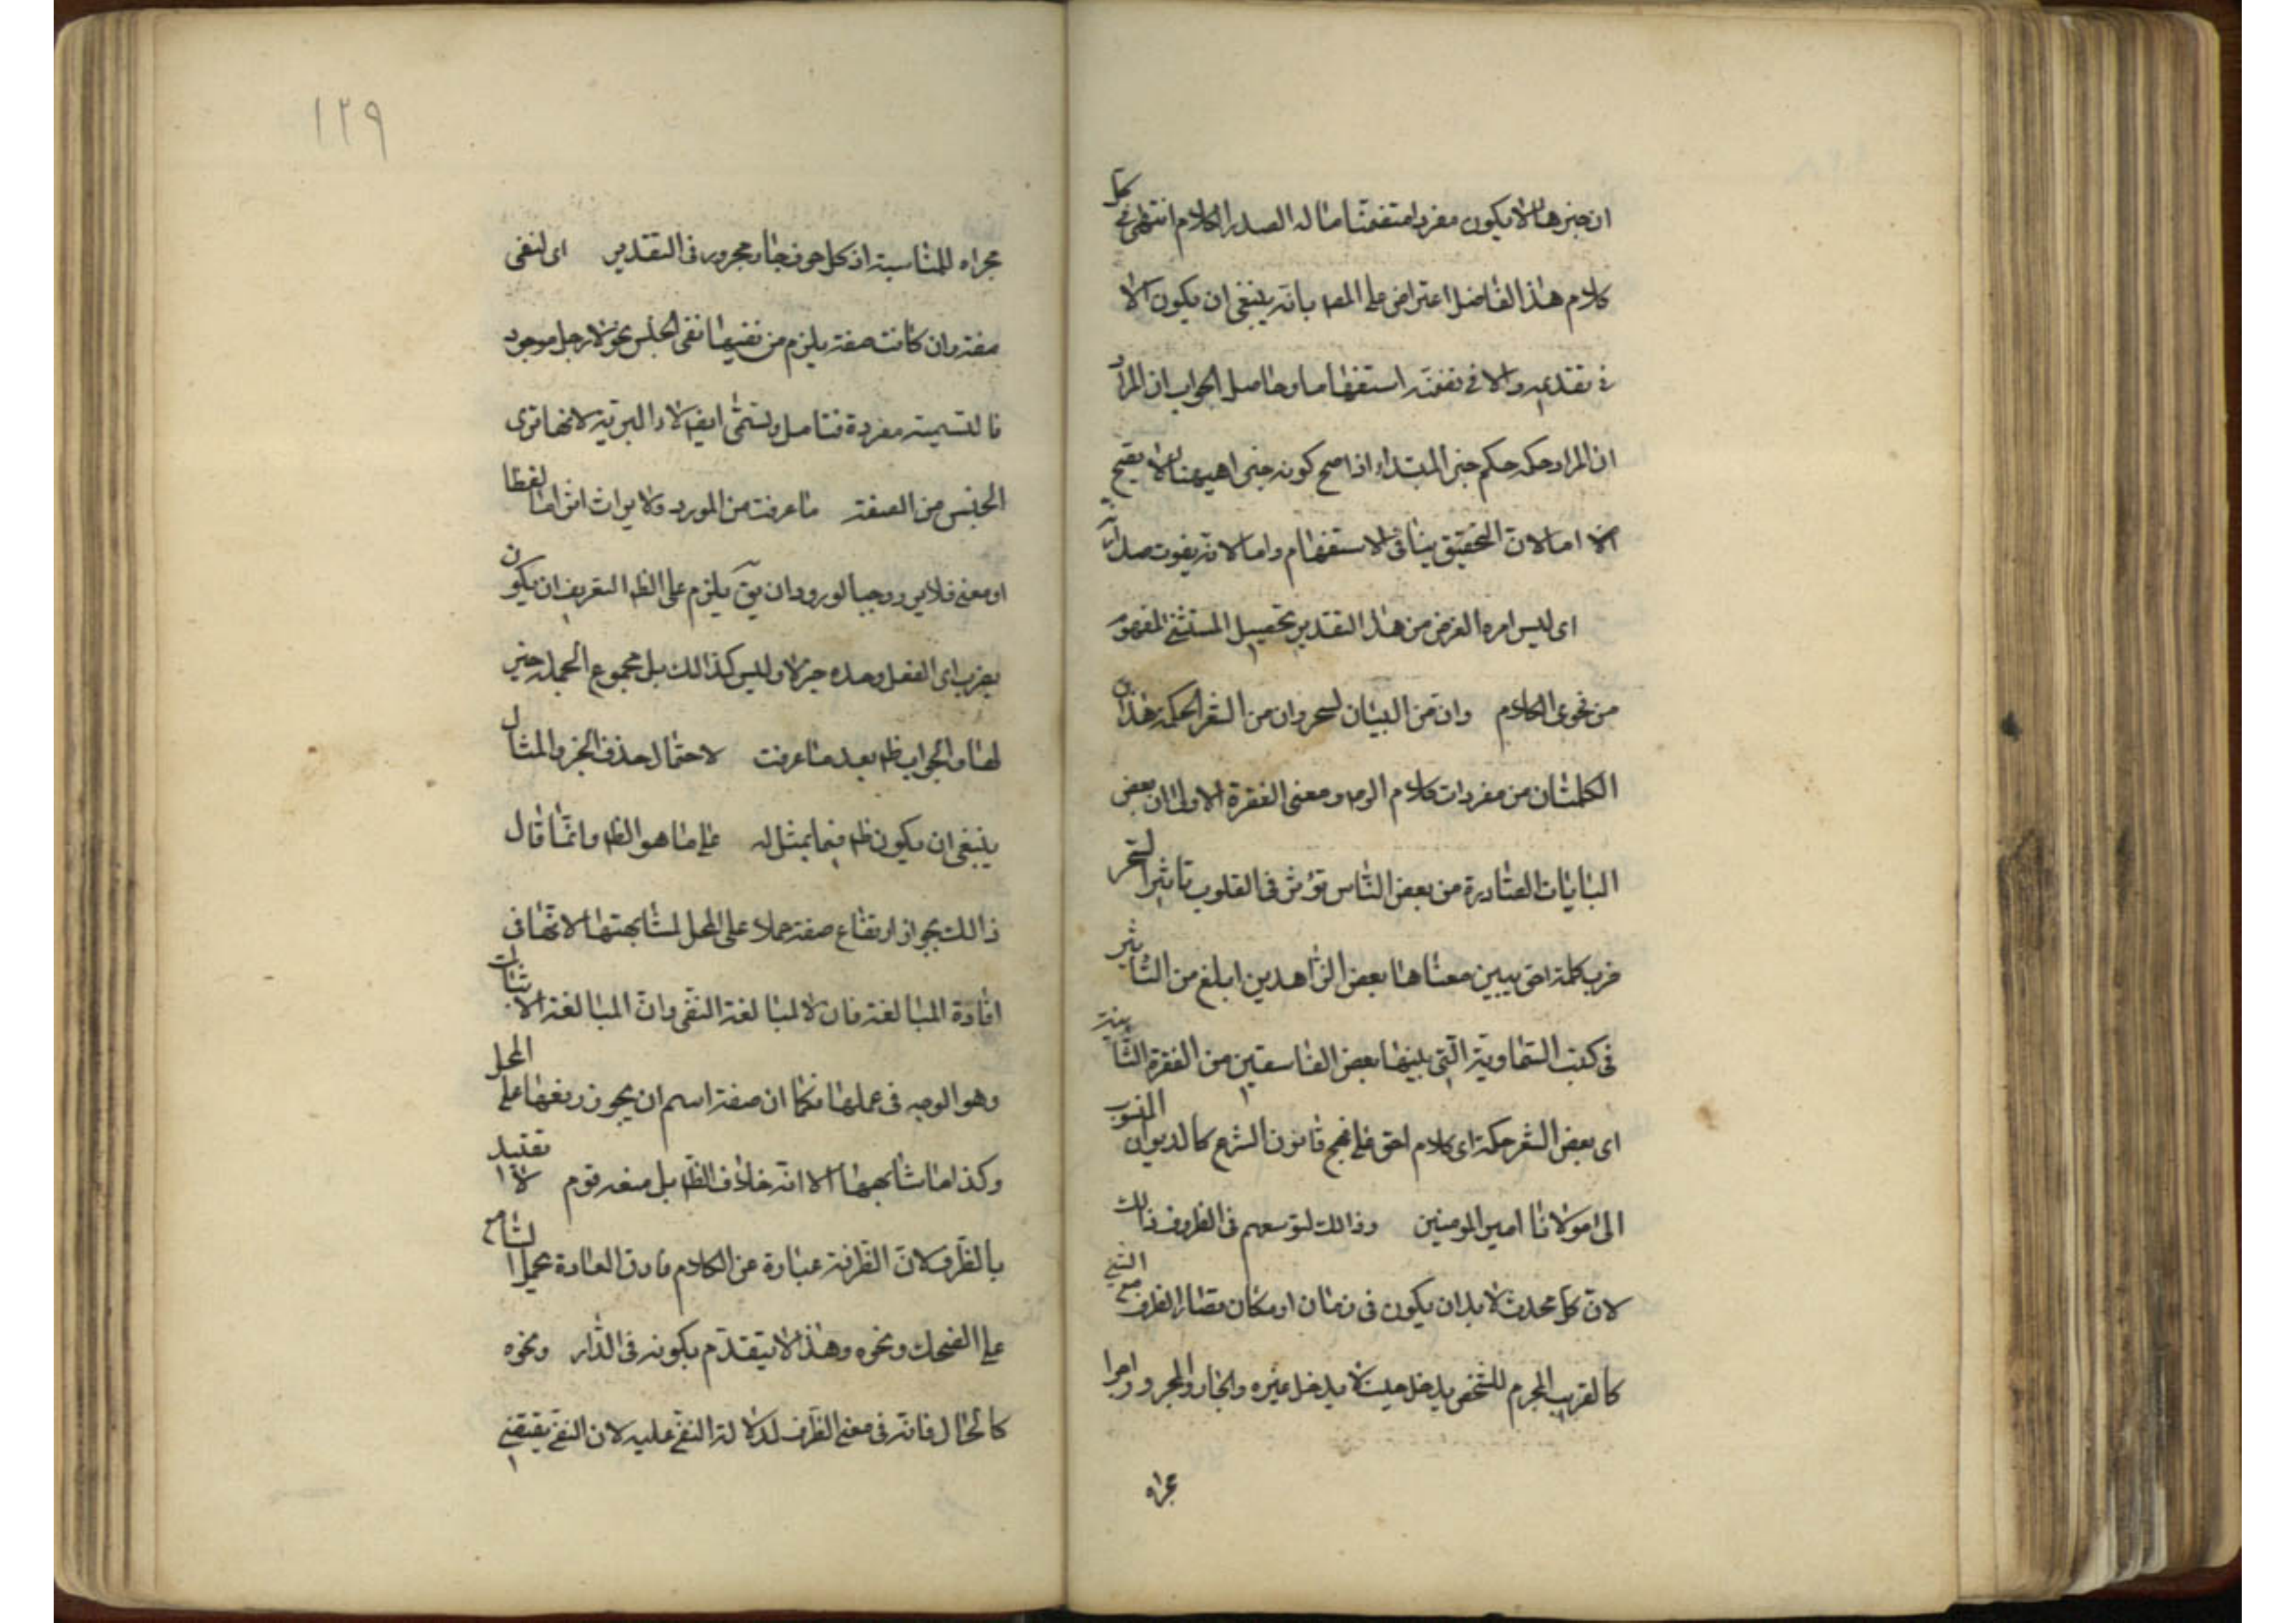 ان خبرها لا يكون مفردا متضمنا ما له الصدر الكلام انتهى في كل
كلام هذا الفاضل اعتراض على المصـ بانه ينبغى ان يكون الا
فى تقديمه والا فى تضمنه استفهاما وحاصل الجواب ان المراد
ان المراد حكمه حكم خبر المبتداء اذا صح كونه خبرا هيهنا لا يصح
اما لان التحقيق ينافى الاستفهام واما لانه يفوت
اى ليس امره الغرض من هذا التقدير تحصيل المستثنى المفهوم
من فحوى الكلام وان من البيان لسحر وان من الشعر لحكمة هذان
الكلمتان من مفردات كلام ومعنى الفقرة الاولى ان بعض
البيانات الصادرة من بعض الناس تؤثر فى القلوب تاثير السحر
فرب كلمة احق يبين معناها بعض الزاهدين ابلغ من التاثير
فى كتب السماوية التى بينها بعض الفاسقين من الفقرة الثانية
اى بعض الشعر حكمة اى كلام احق على نهج قانون الشرع كالديوان المنسوب
الى مولانا امير المومنين وذالك لتوسعهم فى الظروف ذالك
لان كل محدث لا بد ان يكون فى زمان او مكان فصار الظرف مع الشئ
كالقريب المحرم للشخص يدخل حيث لا يدخل غيره والجار والمجرور واجرا
مجراه
١٢٩
مجراه للمناسبة اذ كل ظرف جار ومجرور فى التقدير اى لنفى
صفة وان كانت صفة يلزم من نفيها نفى الجنس نحو لا رجل موجود
فالتسمية مفردة فتامل وتسمى ايضا لا التبرية لانها تبرى
الجنس من الصفة ما عرفت من المورد ولا يراث لفظا
او معنى فلا يرد وجه الورود ان يق يلزم على الظ التعريف ان يكون
يضرب اى الفعل وحده خبر لا وليس كذالك بل مجموع الجملة خبر
لها والجواب ظ بعد ما عرفت لاحتمال حذف الخبر والمثال
ينبغى ان يكون ظ فيما يمثل له على ما هو الظ وانما قال
ذالك بجواز ارتفاع صفة حملا على المحل لمشابهتها لانها فى
افادة المبالغة فان لا لمبالغة النفى وان المبالغة الاثبات
وهو الوجه فى عملها فكما ان صفة اسم ان يجوز رفعها على المحل
وكذا ما شابهها الا انه خلاف الظ بل منعه قوم لا تقييد
بالظرف لان الظرفية عبارة عن الكلام العادة يحمل السامع
على الضحك ونحوه وهذا لا يتقدم بكونه فى الدار ونحوه
كالحال فانه فى معنى الظرف لدلالة النفى عليه لان النفى يقتضى